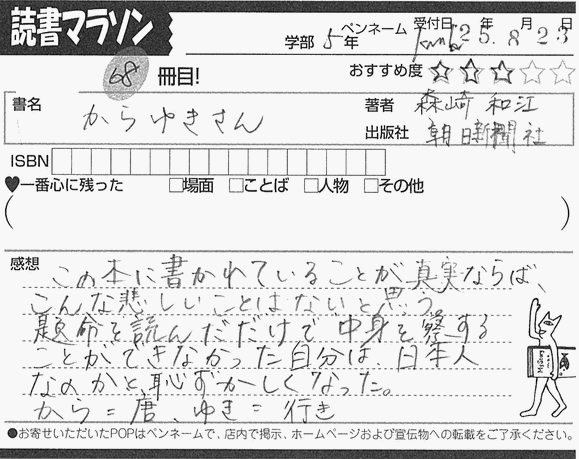 読書マラソン
学部 5年
ペンネーム
受付日 25年 8月 23日
68 冊目!
おすすめ度 ☆☆☆☆☆
書名
からゆきさん
著者 森崎 和江
出版社 朝日新聞社
ISBN
♥一番心に残った □場面 □ことば □人物 □その他
( )
感想
この本に書かれていることが真実ならば、
こんな悲しいことはないと思う
題命を読んだだけで中身を察する
ことができなかった自分は、日本人
なのかと、恥ずかしくなった。
から=唐、ゆき=行き
●お寄せいただいたPOPはペンネームで、店内で掲示、ホームページおよび宣伝物への転載をご了承ください。